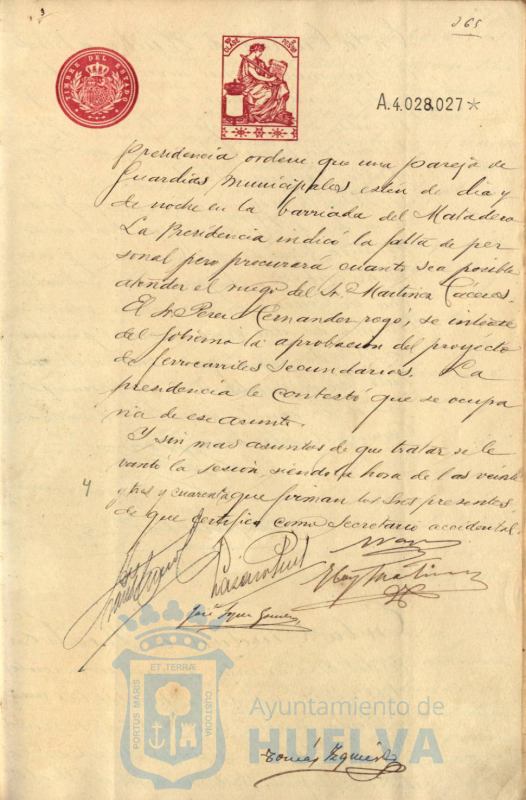 3
265
TIMBRE DEL ESTADO
CLASE
A.4.028.027*
presidencia ordene que una pareja de
Guardias Municipales esten de dia y
de noche en la barriada del Matadero
La Presidencia indicó la falta de per
sonal pero procurará cuanto sea posible
atender el ruego del Sr. Martinez Cáceres.
El Sr Perez Hernandez rogó, se interese
del Gobierno la aprobacion del proyecto
de ferrocarriles secundarios. La
presidencia le contestó que se ocupa
ria de ese asunto.
Y sin mas asuntos de que tratar se le
vantó la sesión, siendo la hora de las veinte
y tres y cuarenta que firman los Sres presentes,
de que certifico como secretario accidental.
4
José
PORTUS MARIS ET TERRÆ CUSTODIA
Ayuntamiento de
HUELVA
Tomás Izquierdo